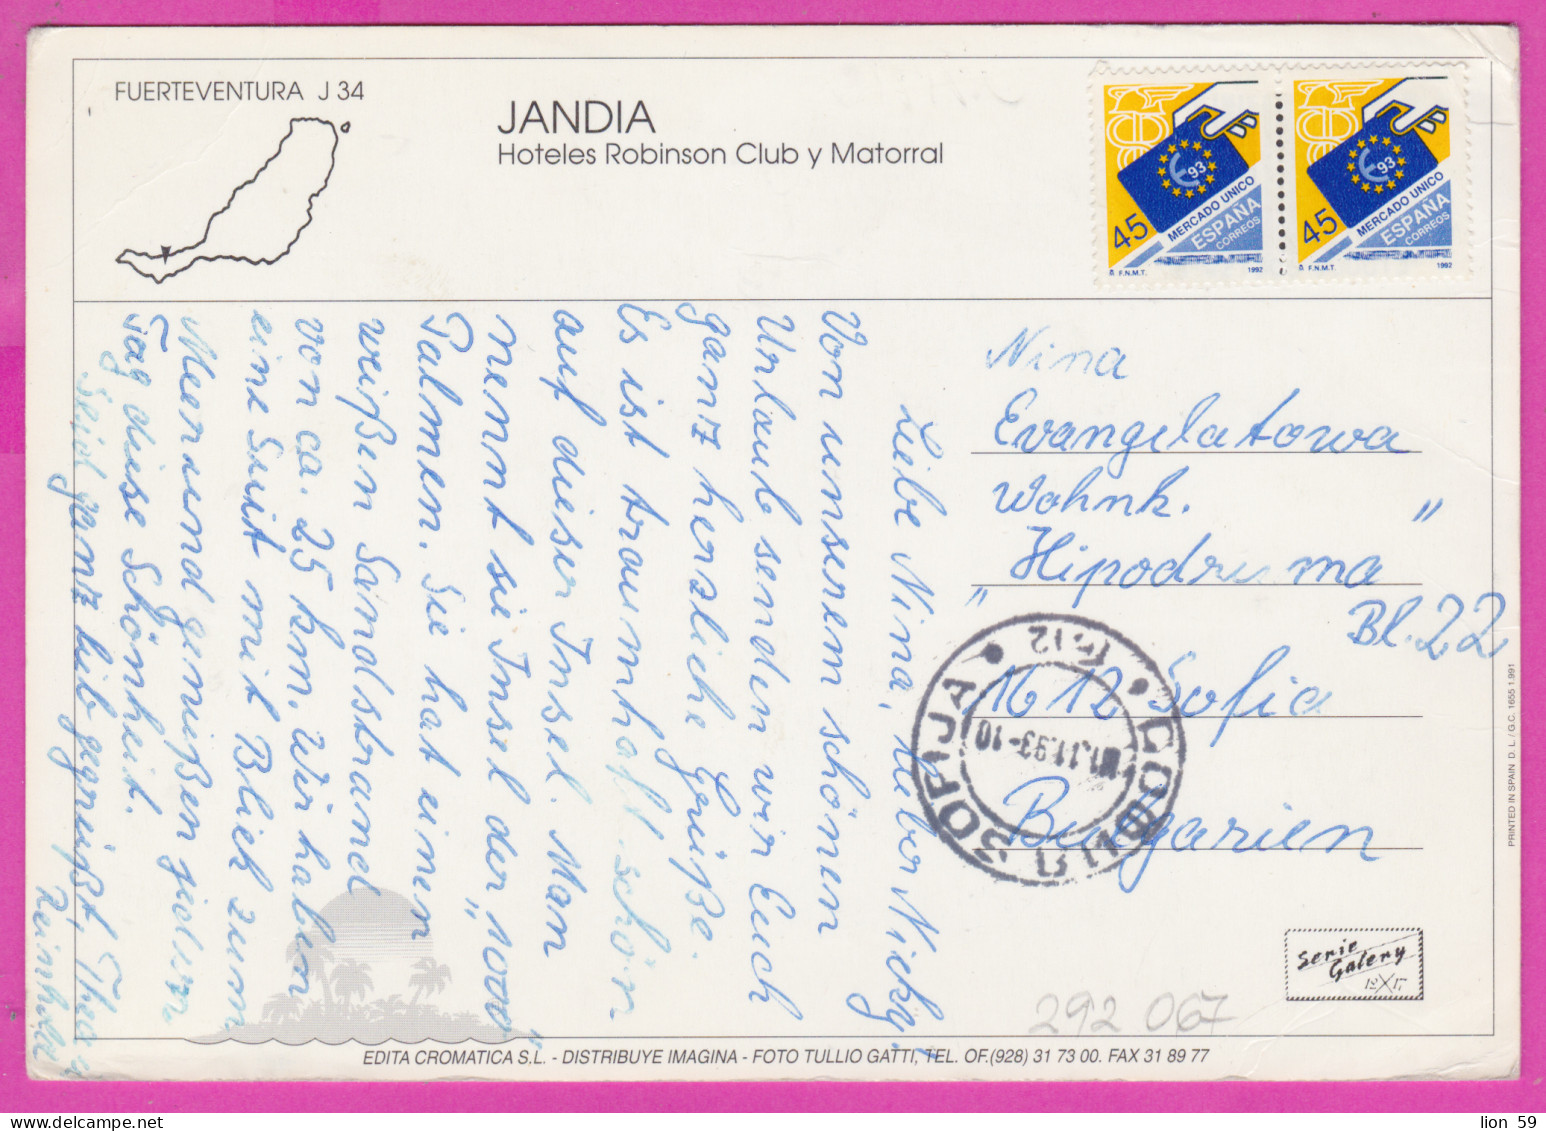 FUERTEVENTURA J 34
JANDIA
Hoteles Robinson Club y Matorral
E 93
45
MERCADO UNICO
ESPAÑA
CORREOS
F.N.M.T. 1992
E 93
45
MERCADO UNICO
ESPAÑA
CORREOS
F.N.M.T. 1992
Liebe Nina, lieber Nicky,
Von unserem schönen
Urlaub senden wir Euch
ganz herzliche Grüße.
Es ist traumhaft schön
auf dieser Insel. Man
nennt sie Insel der „1000"
Palmen. Sie hat einen
weißen Sandstrand
von ca. 25 km. Wir haben
eine Suit mit Blick zum
Meer und genießen jeden
Tag diese Schönheit.
Seid ganz lieb gegrüßt, Thea u
Reinhold
Nina
Evangelatowa
Wohnk.
„Hipodruma"
Bl. 22
1612 Sofia
Bulgarien
СОФИЯ 1612 SOFIJA
11.93-10
Serie
Galery
12X17
292 067
EDITA CROMATICA S.L. - DISTRIBUYE IMAGINA - FOTO TULLIO GATTI, TEL. OF.(928) 31 73 00. FAX 31 89 77
PRINTED IN SPAIN D. L. / G.C. 1655 1.991
lion 59